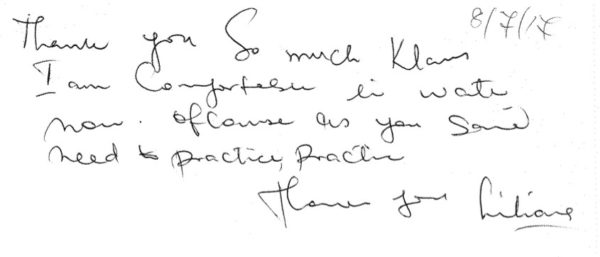 8/7/17
Thank you So much Klaus
I am Comfortable in water
now. Ofcourse as you said
need to practice, Practice
Thank you Liliane